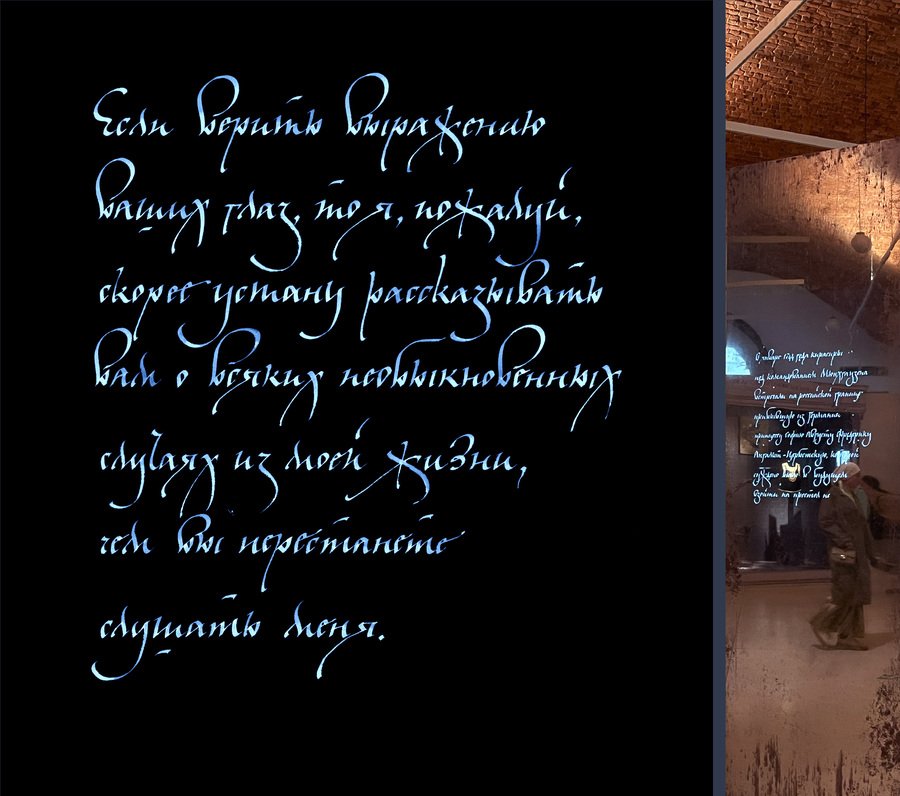 Если верить выражению
ваших глаз, то я, пожалуй,
скорее устану рассказывать
вам о всяких необыкновенных
случаях из моей жизни,
чем вы перестанете
слушать меня.
под командованием Мюнхгаузена
встречали на российской границе
прибывшую из Германии
принцессу Софию Августу Фредерику
Ангальт-Цербстскую,
в будущем
взойти на престол